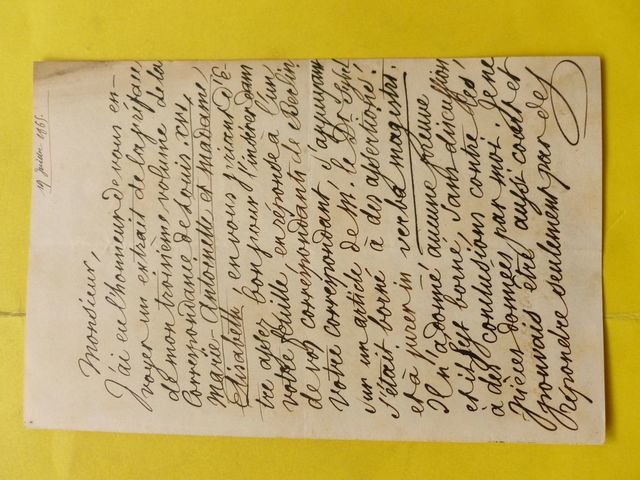 19 Janvier 1865.
Monsieur,
J'ai eu l'honneur de vous en-
voyer un extrait de la préface
de mon troisième volume de la
Correspondance de Louis XVI,
marie-Antoinette et Madame
Elisabeth, en vous priant d'ê-
tre assez bon pour l'insérer dans
votre feuille, en réponse à l'un
de vos correspondants de Berlin.
Votre correspondant, s'appuyant
sur un article de M. le Dr Sybel
s'était borné à des assertions,
et à jurer in verba magistri.
Il n'a donné aucune preuve
et il s'est borné, sans discussion
à des conclusions contre les
pièces données par moi. Je ne
pouvais être aussi court et
répondre seulement par des